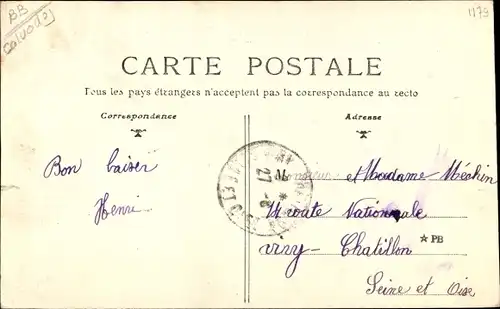 BB
Calvados
1179
CARTE POSTALE
Tous les pays étrangers n'acceptent pas la correspondance au recto
Correspondance
Adresse
Bon baiser
Henri
Monsieur et Madame Méchin
route Nationale
Chatillon
★ PB
Seine et Oise